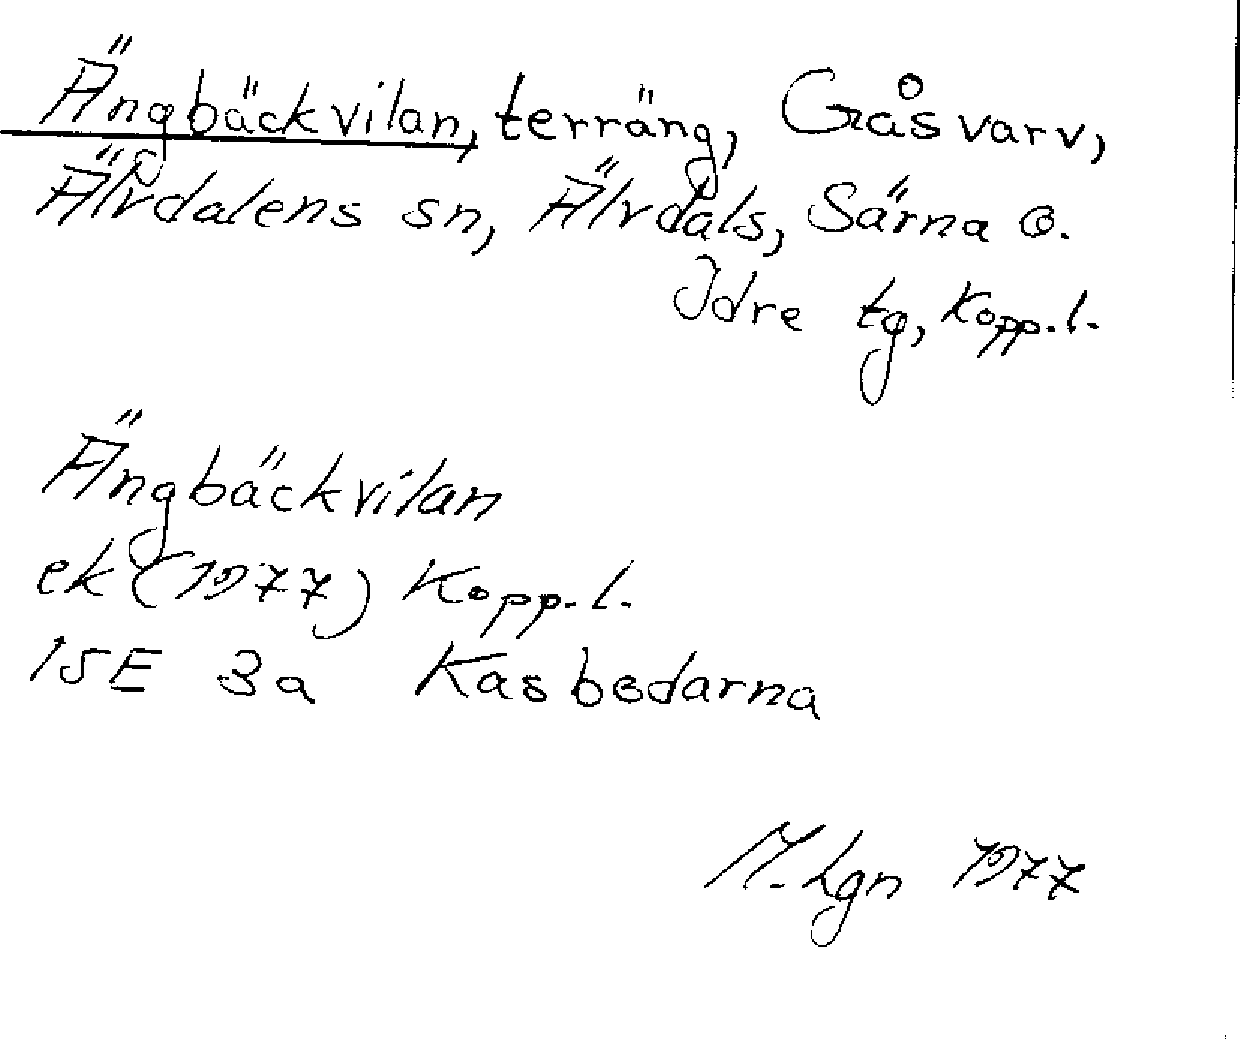 Ängbäckvilan, terräng, Gåsvarv,
Älvdalens sn, Älvdals, Särna o.
Idre tg, Kopp.l.
Ängbäckvilan
ek (1977) Kopp.l.
15E 3a Kasbodarna
M.Lgn 1977